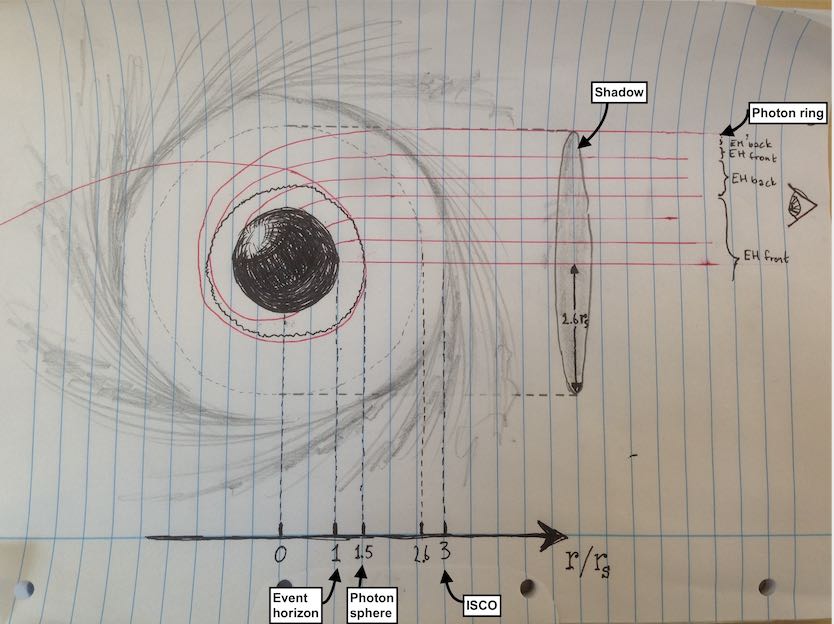 Shadow
Photon ring
EH back
EH front
EH back
EH front
2.6 rs
0 1 1.5 2.6 3
r/rs
Event
horizon
Photon
sphere
ISCO